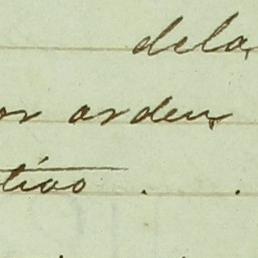 dela
or orden
tivo .   .